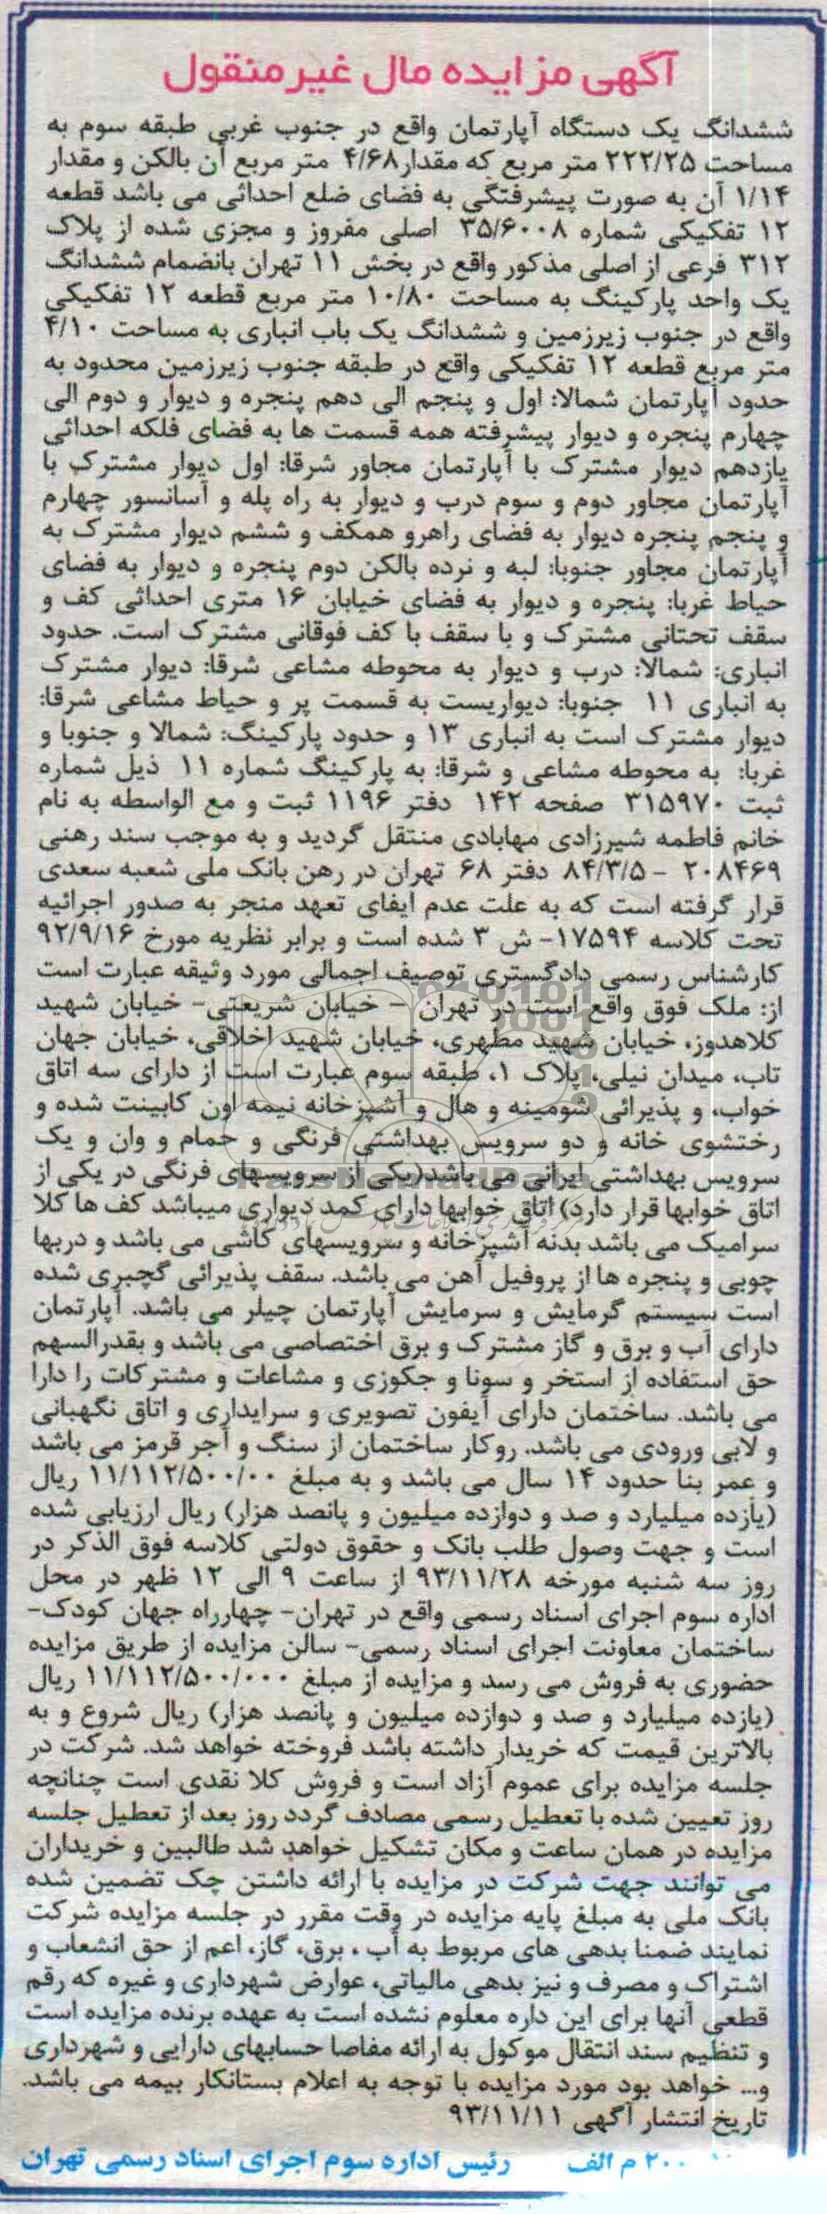 آگهی مزایده مال غیرمنقول
ششدانگ یک دستگاه آپارتمان واقع در جنوب غربی طبقه سوم به
مساحت ۲۲۲/۲۵ متر مربع که مقدار۴/۶۸ متر مربع آن بالکن و مقدار
۱/۱۴ آن به صورت پیشرفتگی به فضای ضلع احداثی می باشد قطعه
۱۲ تفکیکی شماره ۳۵/۶۰۰۸ اصلی مفروز و مجزی شده از پلاک
۳۱۲ فرعی از اصلی مذکور واقع در بخش ۱۱ تهران بانضمام ششدانگ
یک واحد پارکینگ به مساحت ۱۰/۸۰ متر مربع قطعه ۱۲ تفکیکی
واقع در جنوب زیرزمین و ششدانگ یک باب انباری به مساحت ۴/۱۰
متر مربع قطعه ۱۲ تفکیکی واقع در طبقه جنوب زیرزمین محدود به
حدود آپارتمان شمالا: اول و پنجم الی دهم پنجره و دیوار و دوم الی
چهارم پنجره و دیوار پیشرفته همه قسمت ها به فضای فلکه احداثی
یازدهم دیوار مشترک با آپارتمان مجاور شرقا: اول دیوار مشترک با
آپارتمان مجاور دوم و سوم درب و دیوار به راه پله و آسانسور چهارم
و پنجم پنجره دیوار به فضای راهرو همکف و ششم دیوار مشترک به
آپارتمان مجاور جنوبا: لبه و نرده بالکن دوم پنجره و دیوار به فضای
حیاط غربا: پنجره و دیوار به فضای خیابان ۱۶ متری احداثی کف و
سقف تحتانی مشترک و با سقف با کف فوقانی مشترک است. حدود
انباری: شمالا: درب و دیوار به محوطه مشاعی شرقا: دیوار مشترک
به انباری ۱۱ جنوبا: دیواریست به قسمت پر و حیاط مشاعی شرقا:
دیوار مشترک است به انباری ۱۳ و حدود پارکینگ: شمالا و جنوبا و
غربا: به محوطه مشاعی و شرقا: به پارکینگ شماره ۱۱ ذیل شماره
ثبت ۳۱۵۹۷۰ صفحه ۱۴۲ دفتر ۱۱۹۶ ثبت و مع الواسطه به نام
خانم فاطمه شیرزادی مهابادی منتقل گردید و به موجب سند رهنی
۲۰۸۴۶۹ - ۸۴/۳/۵ دفتر ۶۸ تهران در رهن بانک ملی شعبه سعدی
قرار گرفته است که به علت عدم ایفای تعهد منجر به صدور اجرائیه
تحت کلاسه ۱۷۵۹۴- ش ۳ شده است و برابر نظریه مورخ ۹۲/۹/۱۶
کارشناس رسمی دادگستری توصیف اجمالی مورد وثیقه عبارت است
از: ملک فوق واقع است در تهران – خیابان شریعتی- خیابان شهید
کلاهدوز، خیابان شهید مطهری، خیابان شهید اخلاقی، خیابان جهان
تاب، میدان نیلی، پلاک ۱، طبقه سوم عبارت است از دارای سه اتاق
خواب، و پذیرائی شومینه و هال و آشپزخانه نیمه اون کابینت شده و
رختشوی خانه و دو سرویس بهداشتی فرنگی و حمام و وان و یک
سرویس بهداشتی ایرانی می باشد(یکی از سرویسهای فرنگی در یکی از
اتاق خوابها قرار دارد) اتاق خوابها دارای کمد دیواری میباشد کف ها کلا
سرامیک می باشد بدنه آشپزخانه و سرویسهای کاشی می باشد و دربها
چوبی و پنجره ها از پروفیل آهن می باشد. سقف پذیرائی گچبری شده
است سیستم گرمایش و سرمایش آپارتمان چیلر می باشد. آپارتمان
دارای آب و برق و گاز مشترک و برق اختصاصی می باشد و بقدرالسهم
حق استفاده از استخر و سونا و جکوزی و مشاعات و مشترکات را دارا
می باشد. ساختمان دارای آیفون تصویری و سرایداری و اتاق نگهبانی
و لابی ورودی می باشد. روکار ساختمان از سنگ و آجر قرمز می باشد
و عمر بنا حدود ۱۴ سال می باشد و به مبلغ ۱۱/۱۱۲/۵۰۰/۰۰ ریال
(یازده میلیارد و صد و دوازده میلیون و پانصد هزار) ریال ارزیابی شده
است و جهت وصول طلب بانک و حقوق دولتی کلاسه فوق الذکر در
روز سه شنبه مورخه ۹۳/۱۱/۲۸ از ساعت ۹ الی ۱۲ ظهر در محل
اداره سوم اجرای اسناد رسمی واقع در تهران- چهارراه جهان کودک-
ساختمان معاونت اجرای اسناد رسمی- سالن مزایده از طریق مزایده
حضوری به فروش می رسد و مزایده از مبلغ ۱۱/۱۱۲/۵۰۰/۰۰۰ ریال
(یازده میلیارد و صد و دوازده میلیون و پانصد هزار) ریال شروع و به
بالاترین قیمت که خریدار داشته باشد فروخته خواهد شد. شرکت در
جلسه مزایده برای عموم آزاد است و فروش کلا نقدی است چنانچه
روز تعیین شده با تعطیل رسمی مصادف گردد روز بعد از تعطیل جلسه
مزایده در همان ساعت و مکان تشکیل خواهد شد طالبین و خریداران
می توانند جهت شرکت در مزایده با ارائه داشتن چک تضمین شده
بانک ملی به مبلغ پایه مزایده در وقت مقرر در جلسه مزایده شرکت
نمایند ضمنا بدهی های مربوط به آب ، برق، گاز، اعم از حق انشعاب و
اشتراک و مصرف و نیز بدهی مالیاتی، عوارض شهرداری و غیره که رقم
قطعی آنها برای این داره معلوم نشده است به عهده برنده مزایده است
و تنظیم سند انتقال موکول به ارائه مفاصا حسابهای دارایی و شهرداری
و... خواهد بود مورد مزایده با توجه به اعلام بستانکار بیمه می باشد.
تاریخ انتشار آگهی ۹۳/۱۱/۱۱
م الف رئیس اداره سوم اجرای اسناد رسمی تهران